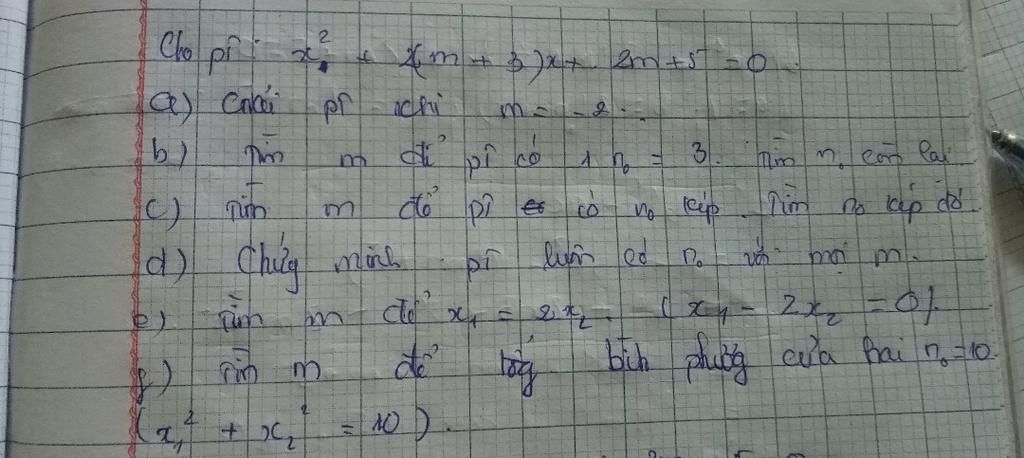 Cho pt: x² + 2(m + 3)x + 2m + 5 = 0.
a) Giải pt khi m = -2.
b) Tìm m để pt có 1 n₀ = 3. Tìm n₀ còn lại
c) Tìm m để pt có n₀ kép. Tìm n₀ kép đó.
d) Chứng minh pt luôn có n₀ với mọi m.
e) Tìm m để x₁ = 2x₂. (x₁ - 2x₂ = 0).
f) Tìm m để tổng bình phương của hai n₀ = 10
(x₁² + x₂² = 10).